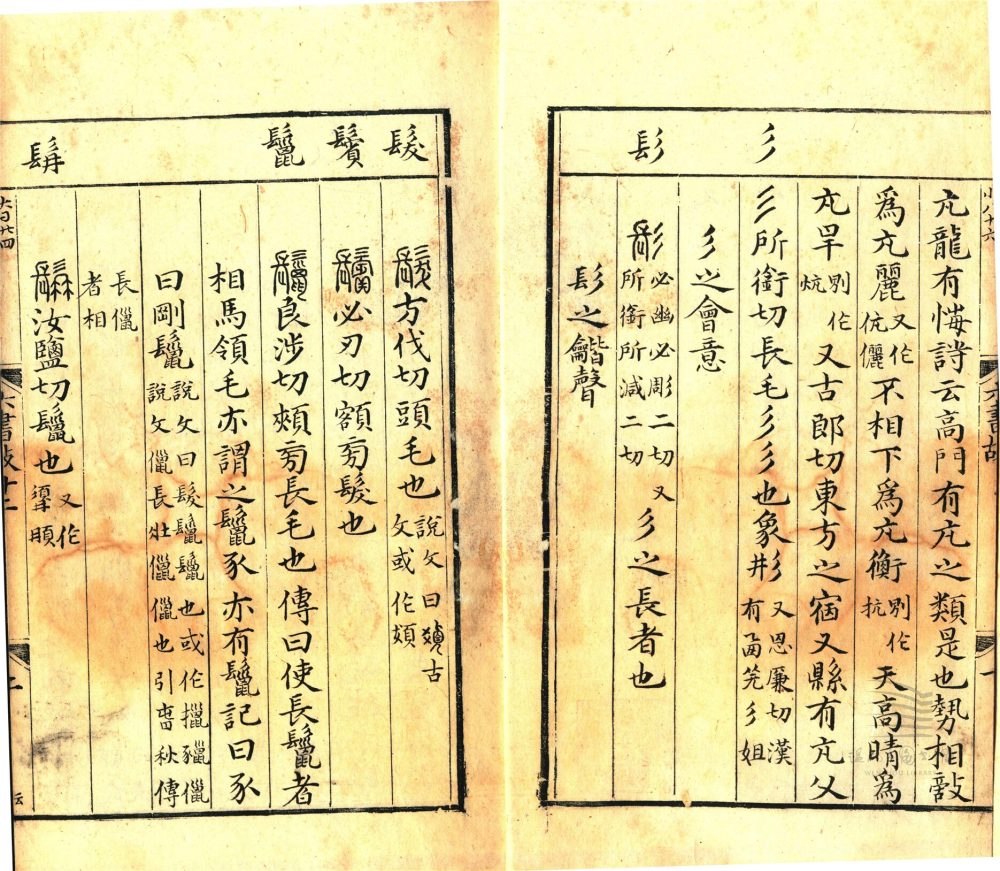 彡
髟
小八十六
亢龍有悔詩云高門有亢之類是也勢相敵
爲亢麗又作伉儷不相下爲亢衡別作抗天高晴爲
亢旱別作炕又古郎切東方之宿又縣有亢父
彡所銜切長毛彡彡也象形又思廉切漢有西羌彡姐
彡之會意
髟必幽必彫二切又所銜所減二切彡之長者也
髟之龤聲
六書故
一
髮
鬢
鬣
髥
髮方伐切頭毛也說文曰古文或作
鬢必刃切額旁髮也
鬣良涉切頰旁長毛也傳曰使長鬣者
相馬領毛亦謂之鬣豕亦有鬣記曰豕
曰剛鬣說文曰髮鬣鬣也或作擸儠說文儠長壯儠儠也引春秋傳
長儠者相
髥汝鹽切鬣也又作
六書故十二
二
大百廿四